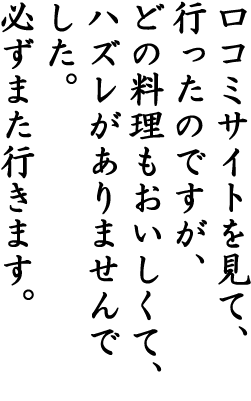 口コミサイトを見て、
行ったのですが、
どの料理もおいしくて、
ハズレがありませんで
した。
必ずまた行きます。